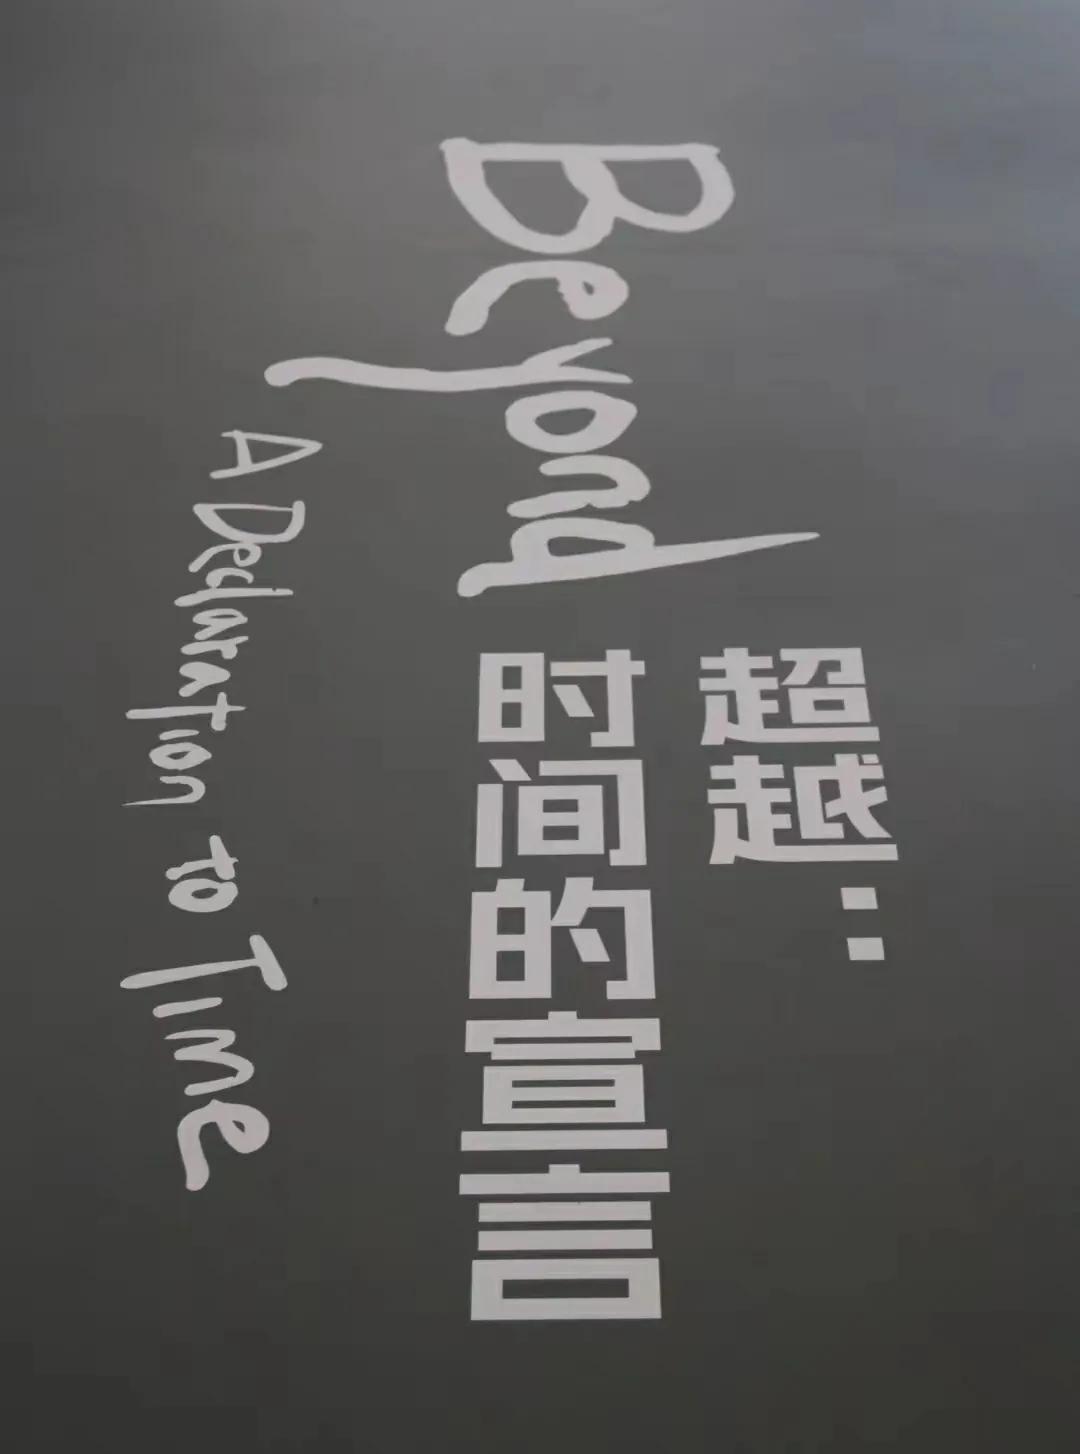 Beyond
A Declaration to Time
超越：
时间的宣言